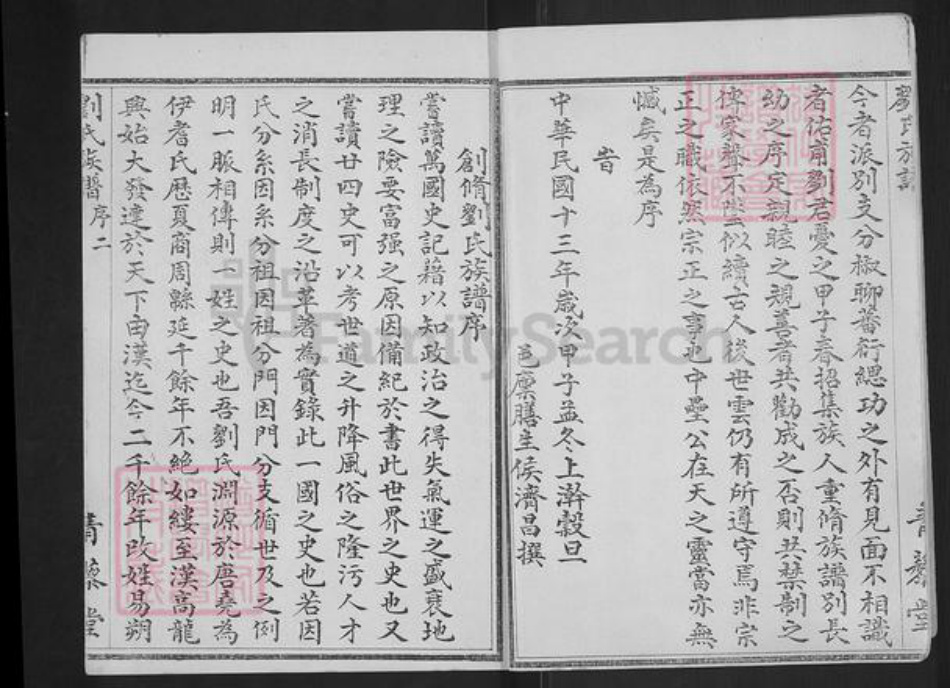 劉氏族譜
青藜堂
今者派別支分椒聊蕃衍緦功之外有見面不相識
者佑甫劉君憂之甲子春招集族人重脩族譜別長
幼之序定親睦之規善者共勸成之否則共禁制之
傳家聲不墜似續古人後世雲仍有所遵守焉非宗
正之職依然宗正之事也中壘公在天之靈當亦無
憾矣是為序
旹
中華民國十三年歲次甲子孟冬上澣穀旦
邑廩膳生侯濟昌撰
創脩劉氏族譜序
嘗讀萬國史記藉以知政治之得失氣運之盛衰地
理之險要富强之原因備紀於書此世界之史也又
嘗讀廿四史可以考世道之升降風俗之隆污人才
之消長制度之沿革著為實錄此一國之史也若因
氏分系因系分祖因祖分門因門分支循世及之例
明一脈相傳則一姓之史也吾劉氏淵源於唐堯為
伊耆氏歷夏商周緜延千餘年不絕如縷至漢高龍
興始大發達於天下由漢迄今二千餘年改姓易朔
劉氏族譜序二
青藜堂
FamilySearch